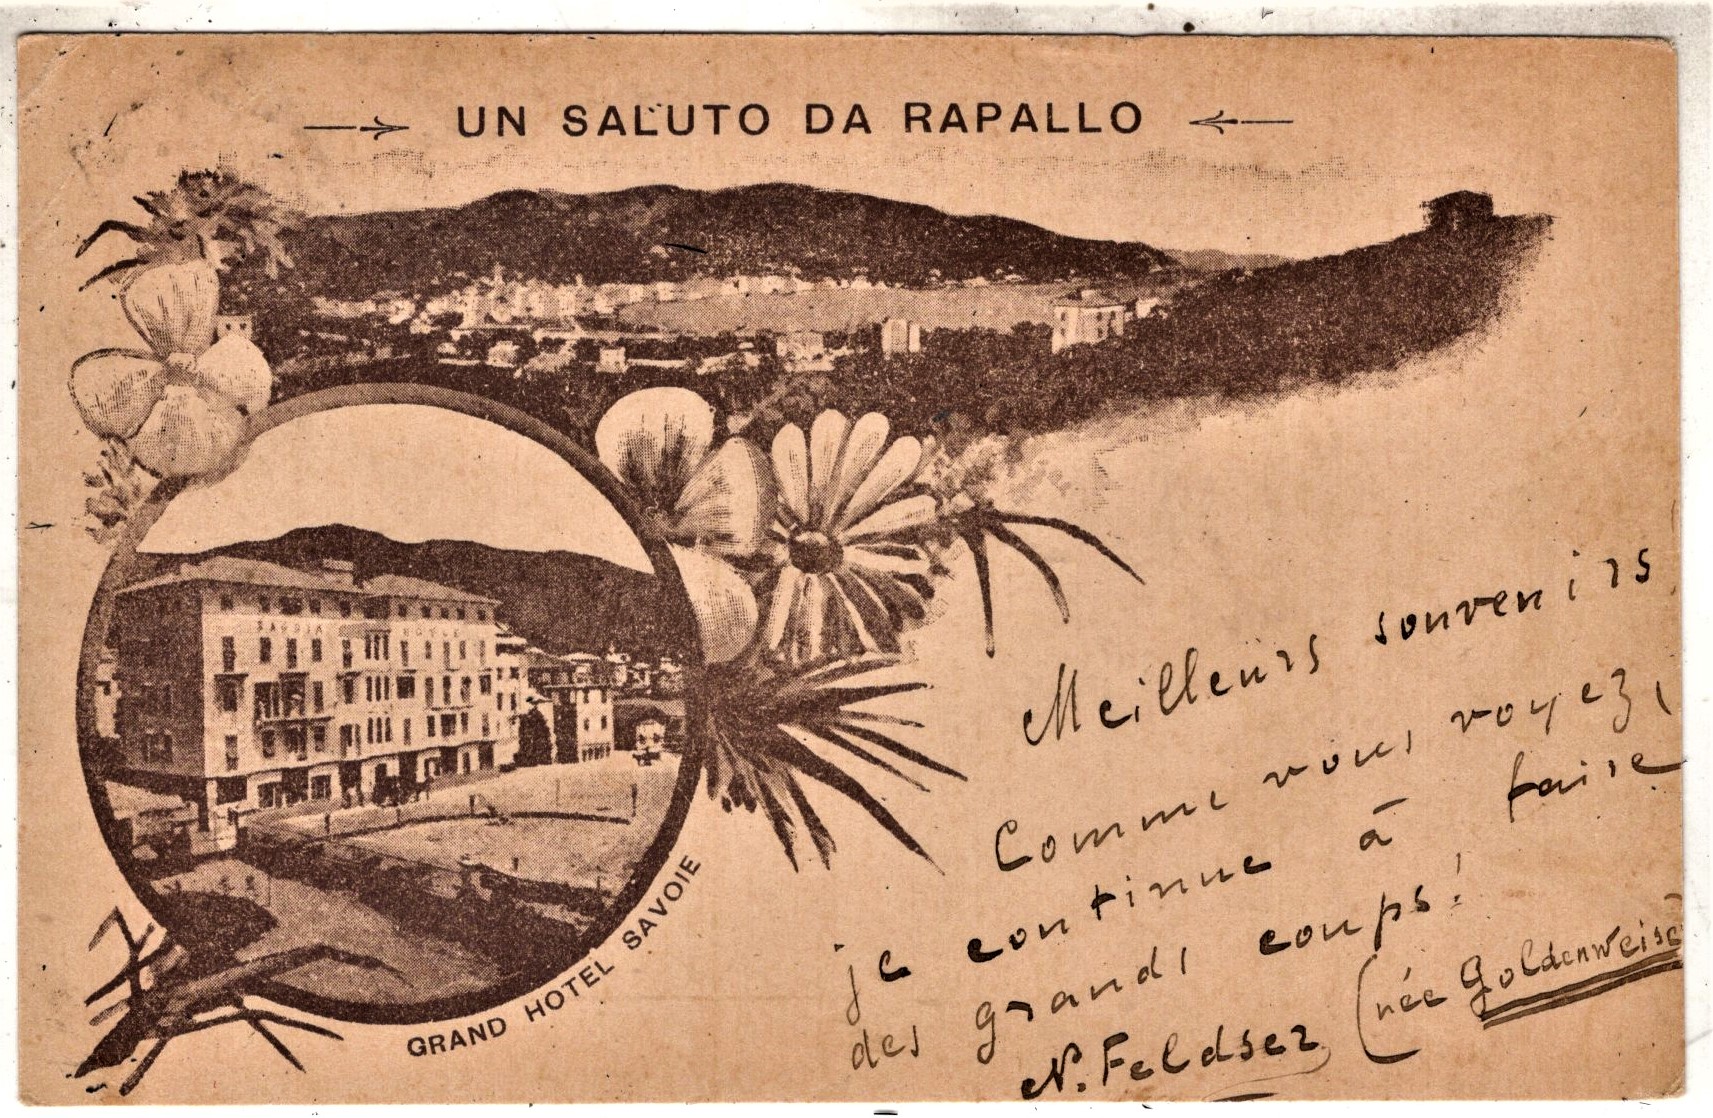 UN SALUTO DA RAPALLO
SAVOIA
GRAND HOTEL SAVOIE
Meilleurs souvenirs
Comme vous voyez,
je continue à faire
des grands coups!
N. Feldser (née Goldenweise